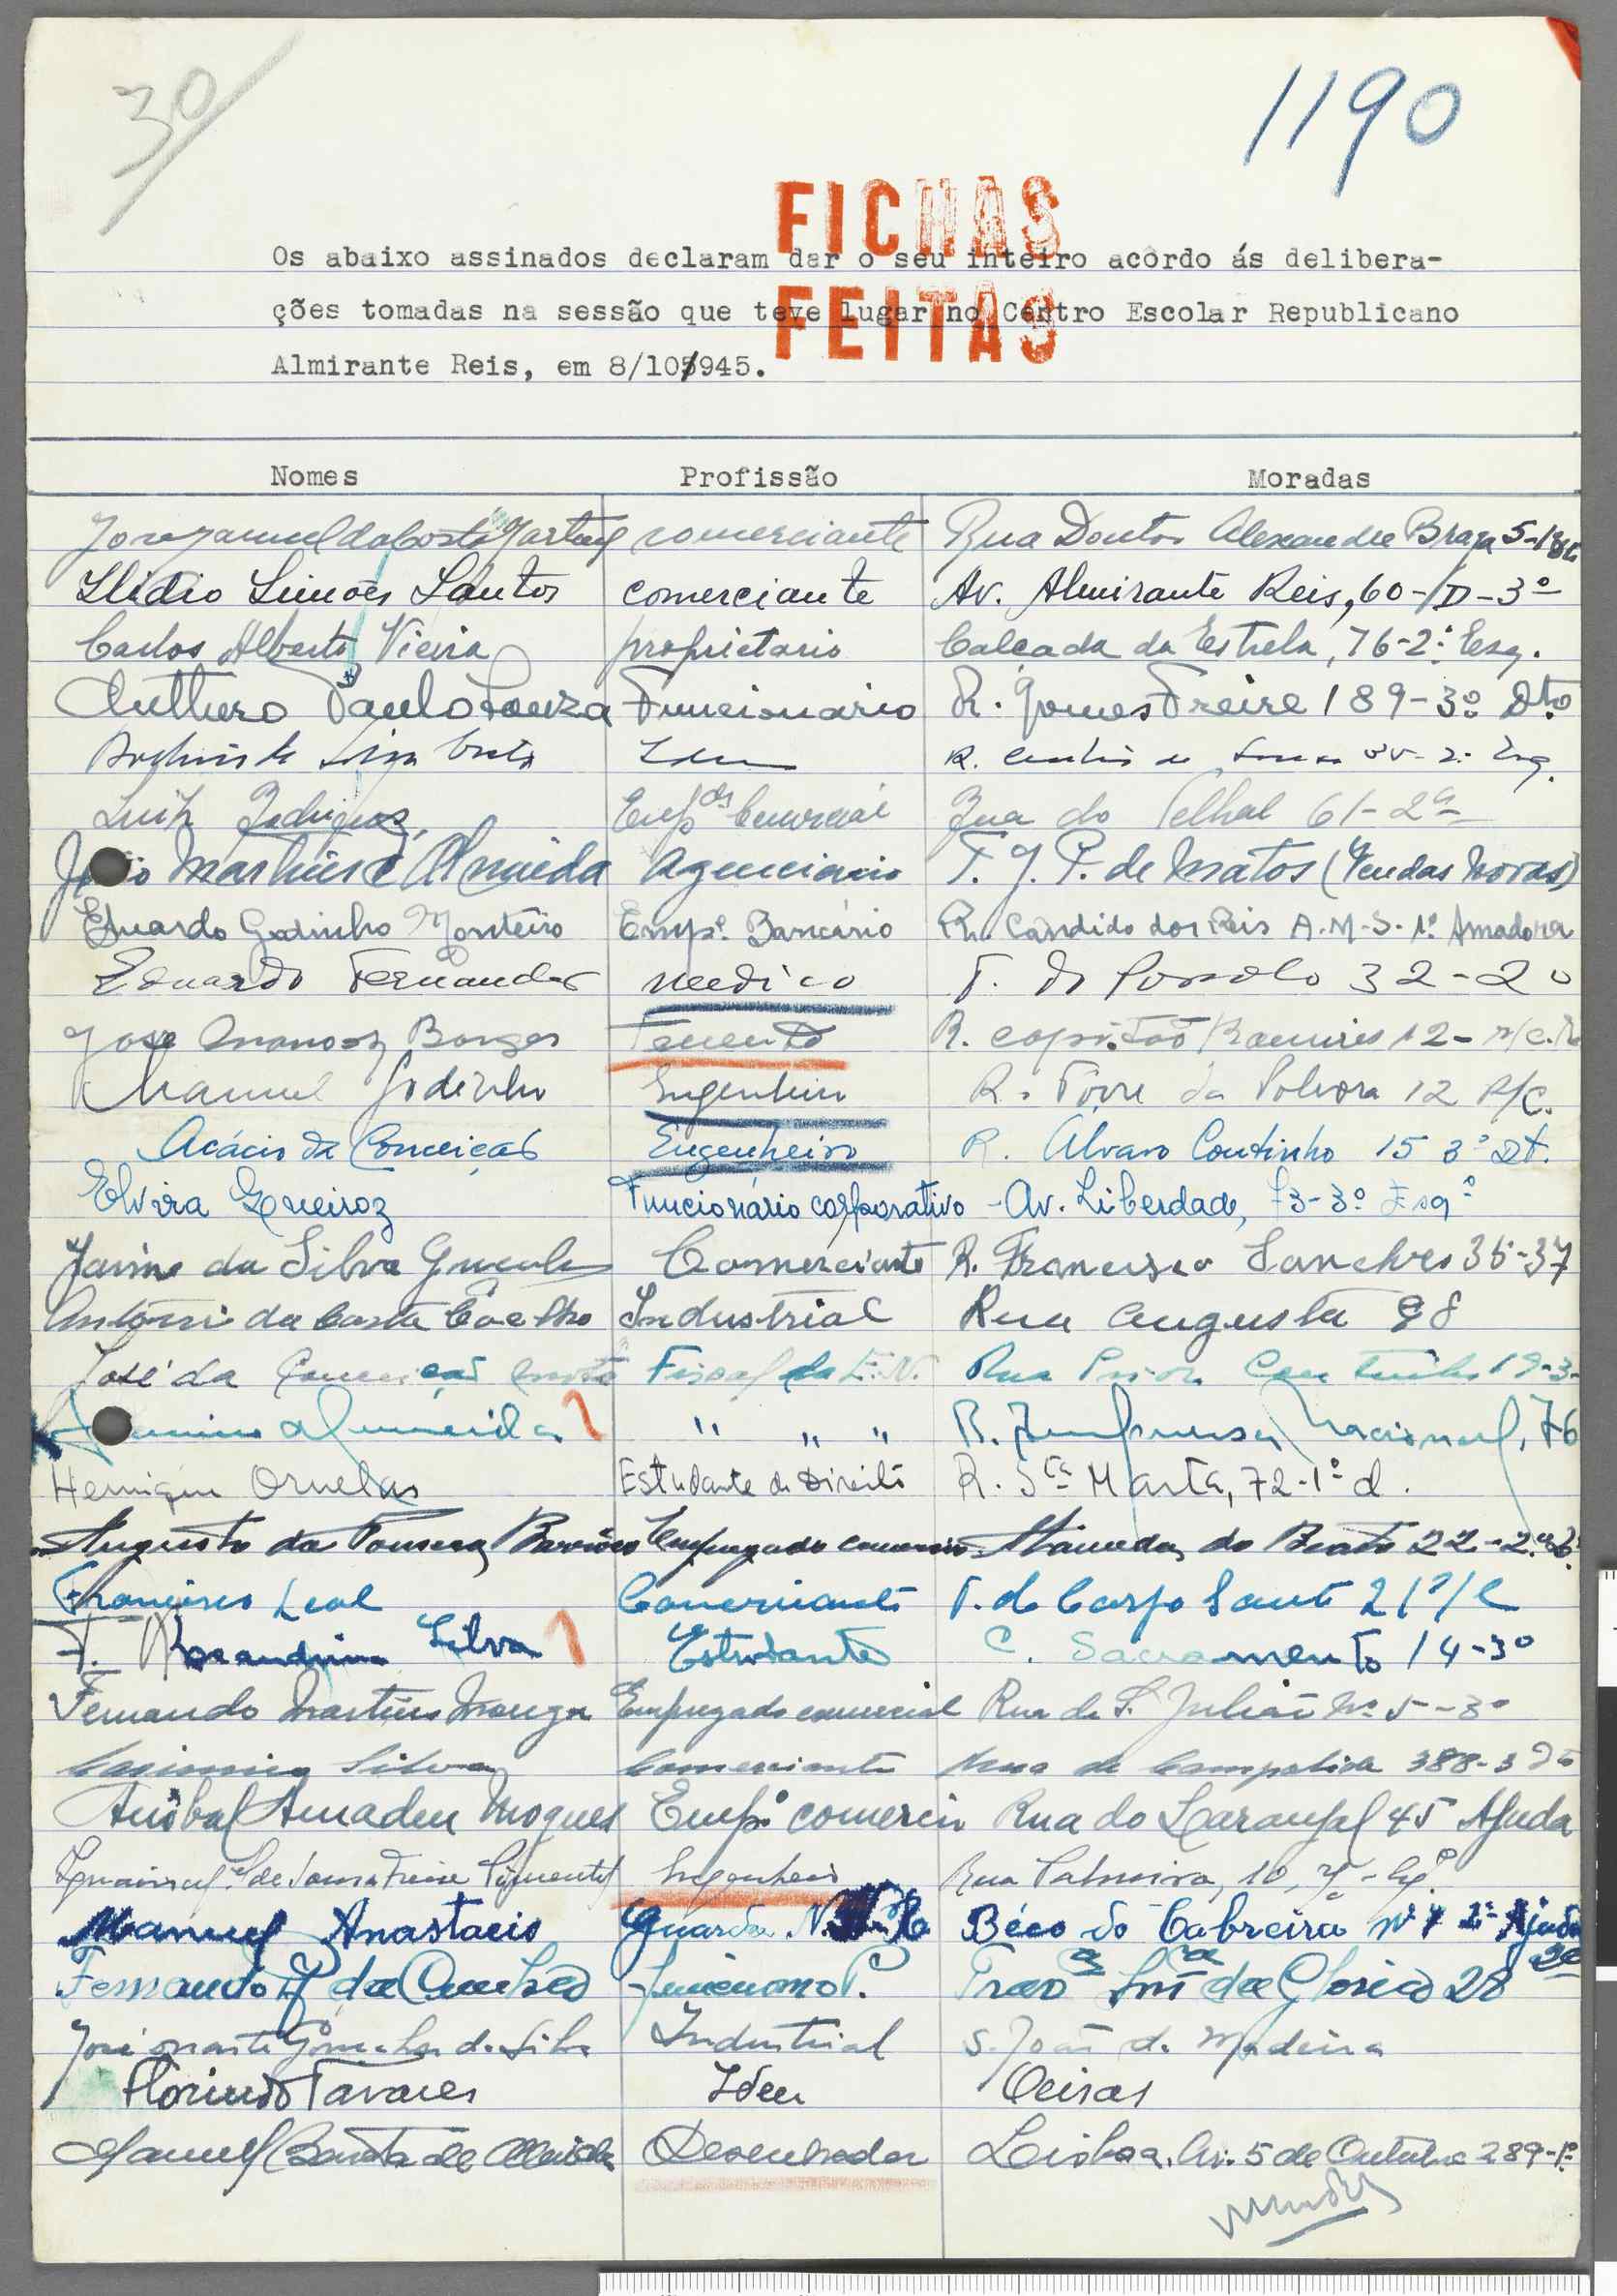 30
1190
FICHAS
FEITAS
Os abaixo assinados declaram dar o seu inteiro acôrdo ás delibera-
ções tomadas na sessão que teve lugar no Centro Escolar Republicano
Almirante Reis, em 8/10/945.
Nomes Profissão Moradas
José Manuel da Costa Martins comerciante Rua Doutor Alexandre Braga 5-1º
Ilidio Simões Santos comerciante Av. Almirante Reis, 60-D-3º
Carlos Alberto Vieira proprietario Calçada da Estrela, 76-2º Esq.
Anthero Paulo Souza Funcionario R. Gomes Freire 189-3º Dto
Idem R. de 2º Esq.
Luiz Rodrigues Empº Comercial Rua do Telhal 61-2º
João Martins d'Almeida Agenciario T. J. P. de Matos (Vendas Novas)
Eduardo Godinho Monteiro Empº. Bancário R. Candido dos Reis A.M.S. 1º Amadora
Eduardo Fernandes medico T. do Possolo 32-2º
José Borges Tenente R. capitão Ramires 12-r/c.
Manuel Godinho Engenheiro R. Tôrre da Polvora 12 R/C.
Acácio da Conceição Engenheiro R. Alvaro Coutinho 15 3º Dt.
Elvira Queiroz Funcionário corporativo - Av. Liberdade, 73-3º Esqº
Jaime da Silva Comerciante R. Francisco Sanches 35-37
António da Costa Coelho Industrial Rua Augusta 98
José da Conceição Fiscal da E.N. Rua Prior Coutinho 19-3º
Almeida " " " R. Imprensa Nacional, 76
Henrique Ornelas Estudante de Direito R. Sta Marta, 72-1º d.
Augusto da Fonseca Empregado comercio Alameda do Beato 22-2º
Francisco Leal Comerciante T. do Corpo Santo 21
F. Silva Estudante C. Sacramento 14-3º
Fernando Martins Empregado comercial Rua de S. Julião Nº 5-3º
Casimiro Silva Comerciante Rua de Campolide 388-3 Dto
Anibal Amadeu Moques Empº comercio Rua do Laranjal 45 Ajuda
de Sousa Freire Pimentel Engenheiro Rua Palmira, 10, Esqº
Manuel Anastacio Guarda N. R. Béco do Cabreira nº 7 2º Ajuda
Fernando da Funcionario P. Trav Sra da Gloria 28 2º
José Duarte da Silva Industrial S. João da Madeira
Florindo Tavares Idem Oeiras
Manuel Batista de Almeida Desenhador Lisboa. Av. 5 de Outubro 289-1º